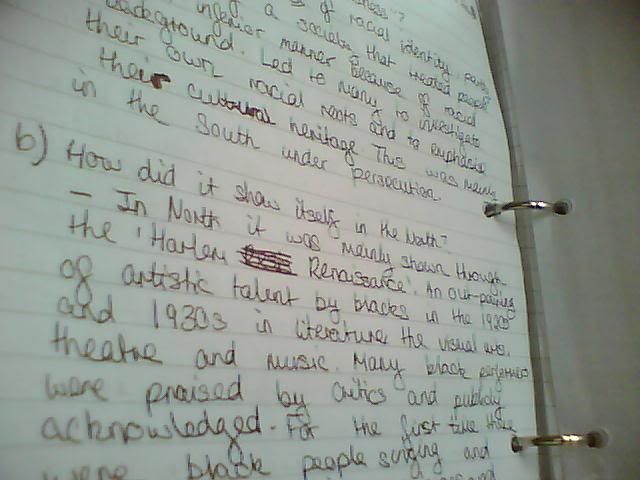 of racial identity
of a society that treated people
inferior manner because of racial
background. Led to many to investigate
their own racial roots and to emphasise
their cultural heritage This was mainly
in the South under persecution.
b) How did it show itself in the North?
- In North it was mainly shown through
the 'Harlem Renaissance'. An out-pouring
of artistic talent by blacks in the 1920s
and 1930s in literature the visual arts,
theatre and music. Many black performers
were praised by critics and publicly
acknowledged. For the first time there
were black people singing and